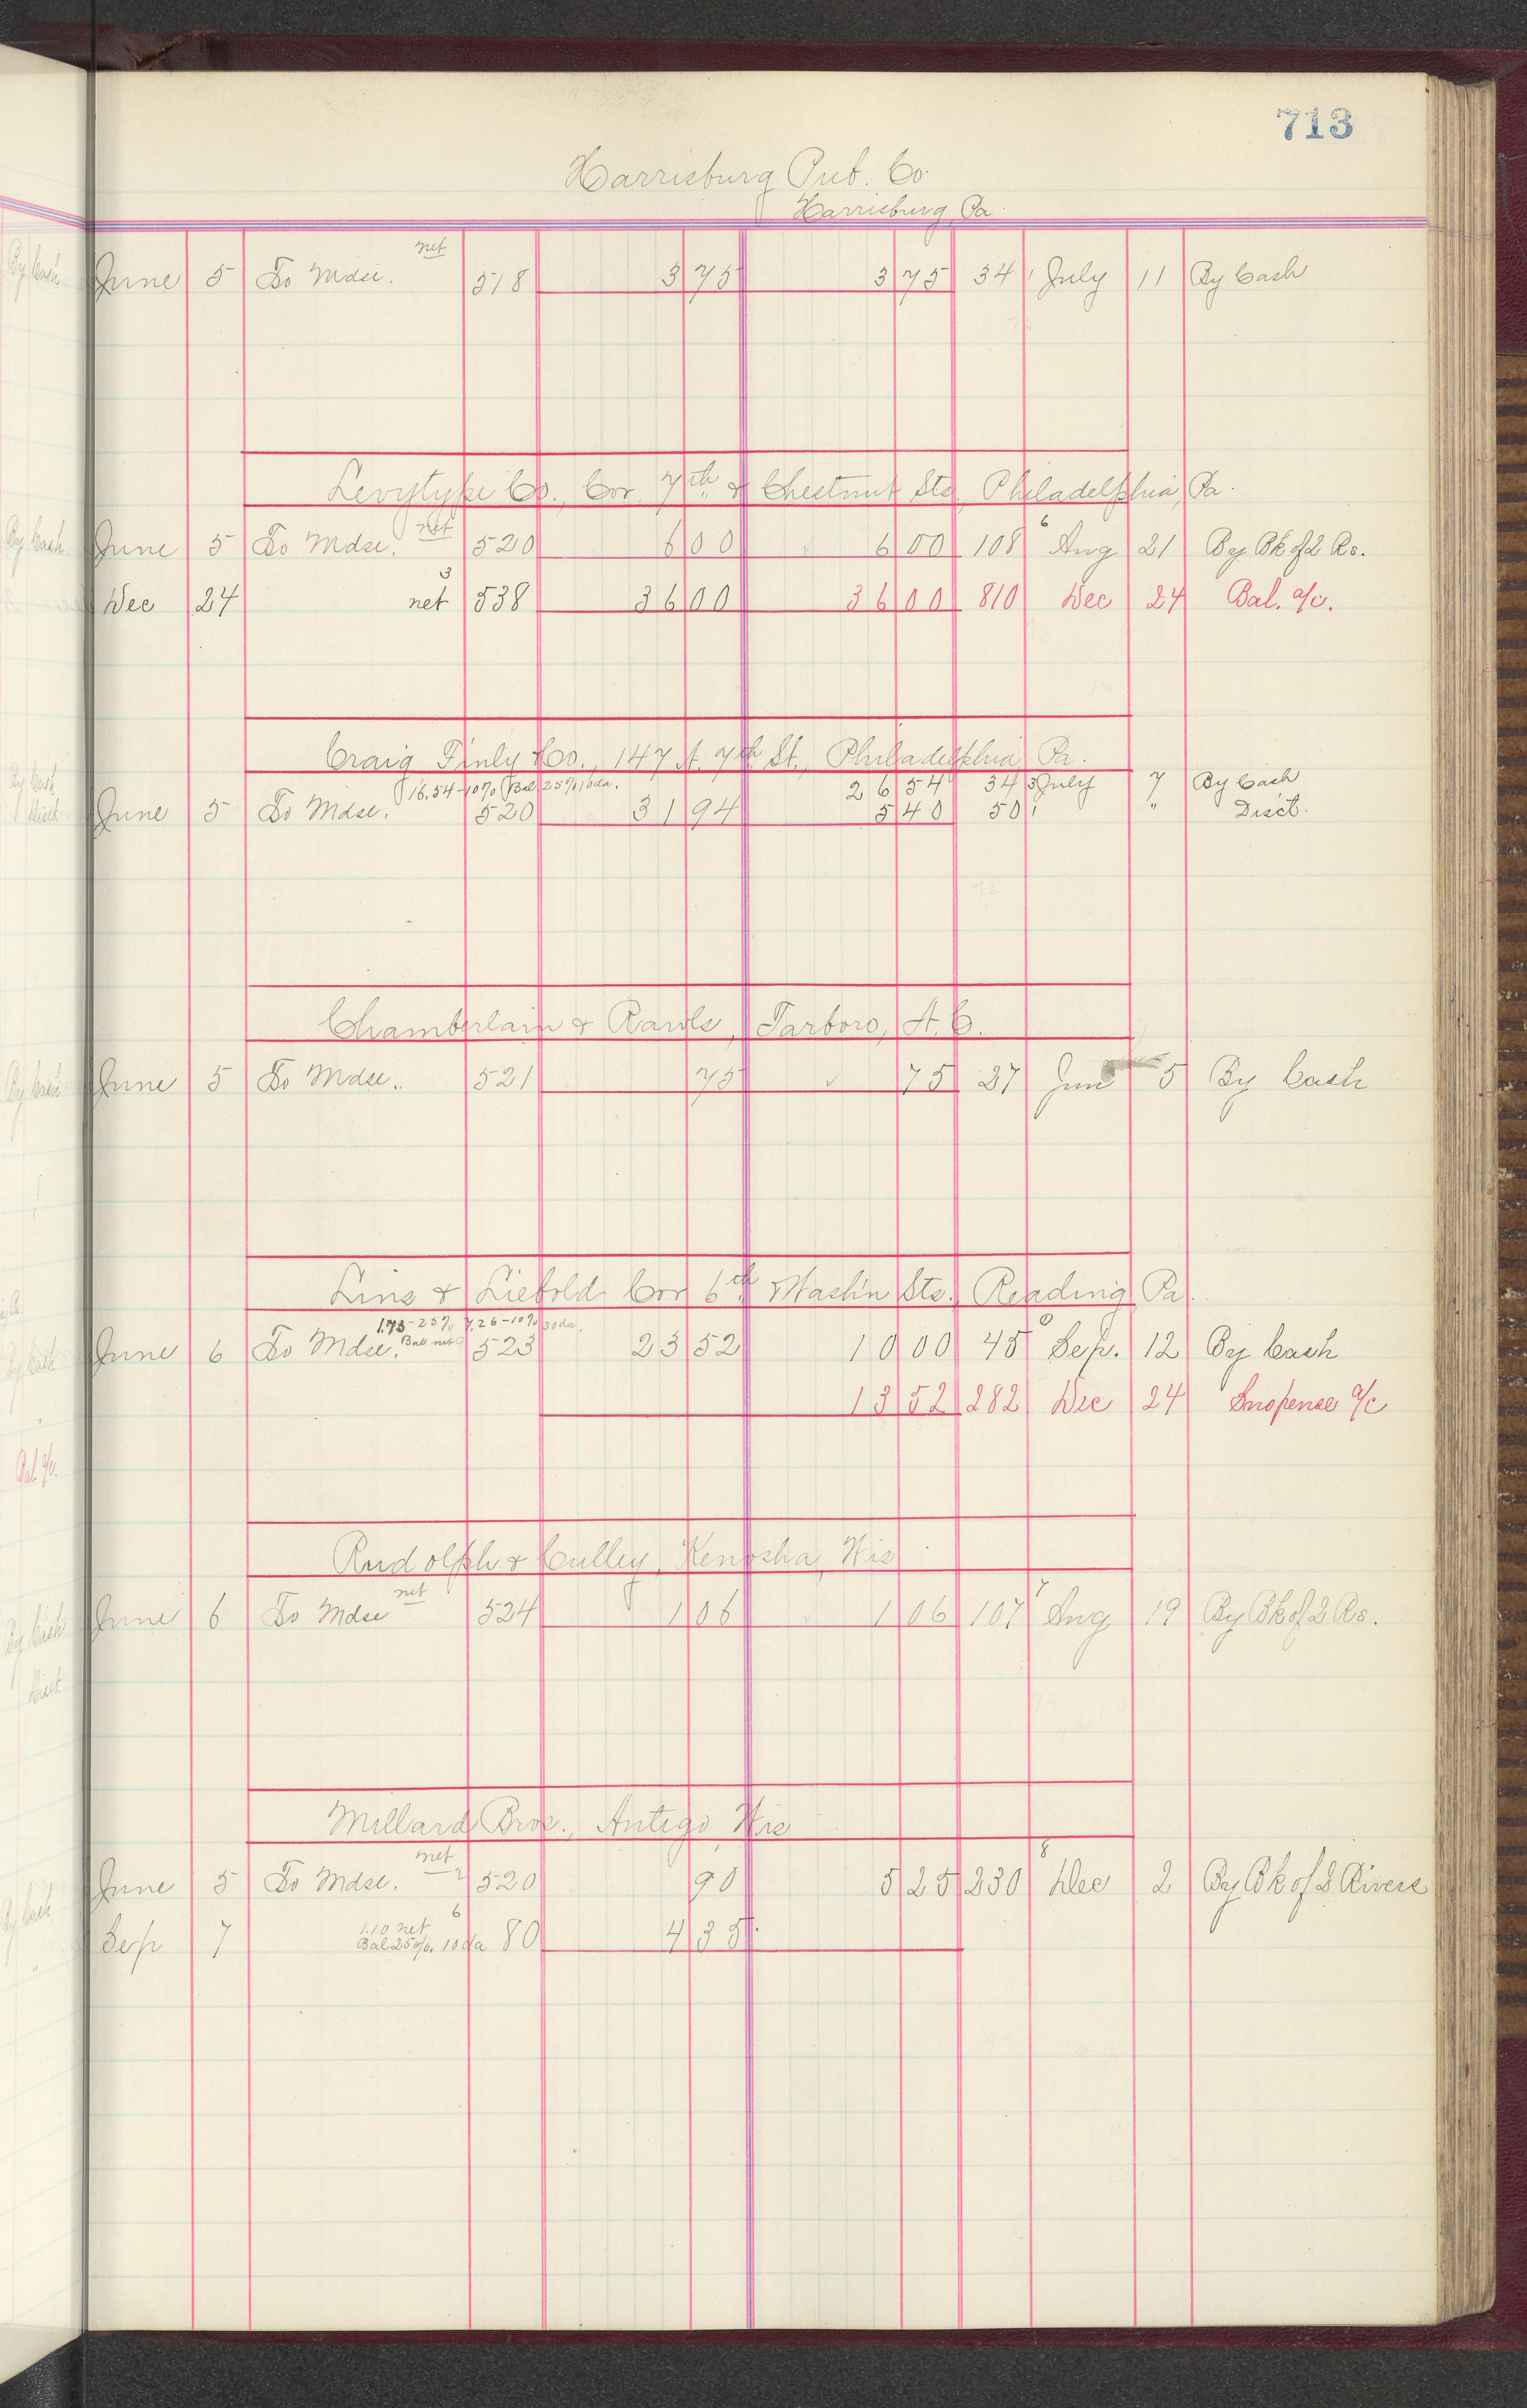 713
Harrisburg Pub. Co.
Harrisburg, Pa.
net
June 5 To Mdse. 518 3 75 3 75 34 July 11 By Cash
Levytype Co., Cor. 7th & Chestnut Sts, Philadelphia, Pa.
net 6
June 5 To Mdse. 520 6 00 6 00 108 Aug 21 By Bk of 2 Rs.
3
Dec 24 net 538 36 00 36 00 810 Dec 24 Bal. a/c.
Craig Finly & Co., 147 N. 7th St., Philadelphia Pa.
16.54-10% Bal 25% 10da. 26 54 34 3 July 7 By Cash
June 5 To Mdse. 520 31 94 5 40 50 1 " Disct.
Chamberlain & Rawls, Tarboro, N.C.
June 5 To Mdse. 521 75 75 27 Jun 5 By Cash
Lins & Liebold Cor 6th & Wash'n Sts. Reading, Pa.
1.75-25% 7.26-10% 30da.
June 6 To Mdse. Bal net 523 23 52 10 00 45 Sep. 12 By Cash
13 52 282 Dec 24 Suspense a/c
Rudolph & Culley, Kenosha, Wis
net 7
June 6 To Mdse 524 1 06 1 06 107 Aug 19 By Bk of 2 Rs.
Millard Bros., Antigo, Wis
net 8
June 5 To Mdse. 520 90 5 25 230 Dec 2 By Bk of 2 Rivers
1.10 net 6
Sep 7 Bal 25%. 10da 80 4 35